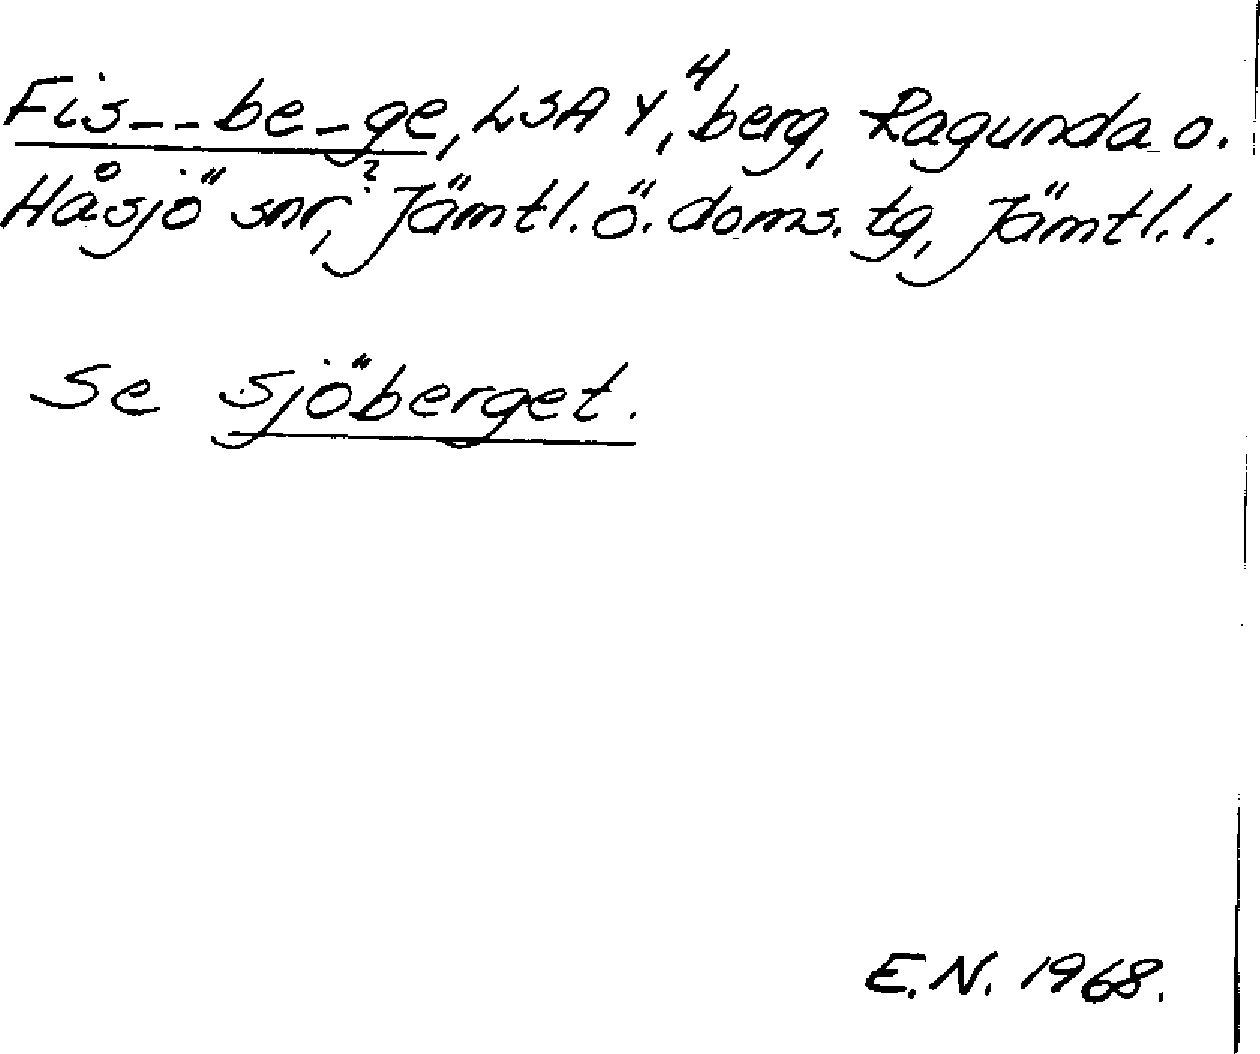 Fis--be-ge, LSA Y⁴, berg, Ragunda o.
Håsjö snr,? Jämtl. ö. doms. tg, Jämtl. l.
Se Sjöberget.
E.N. 1968.